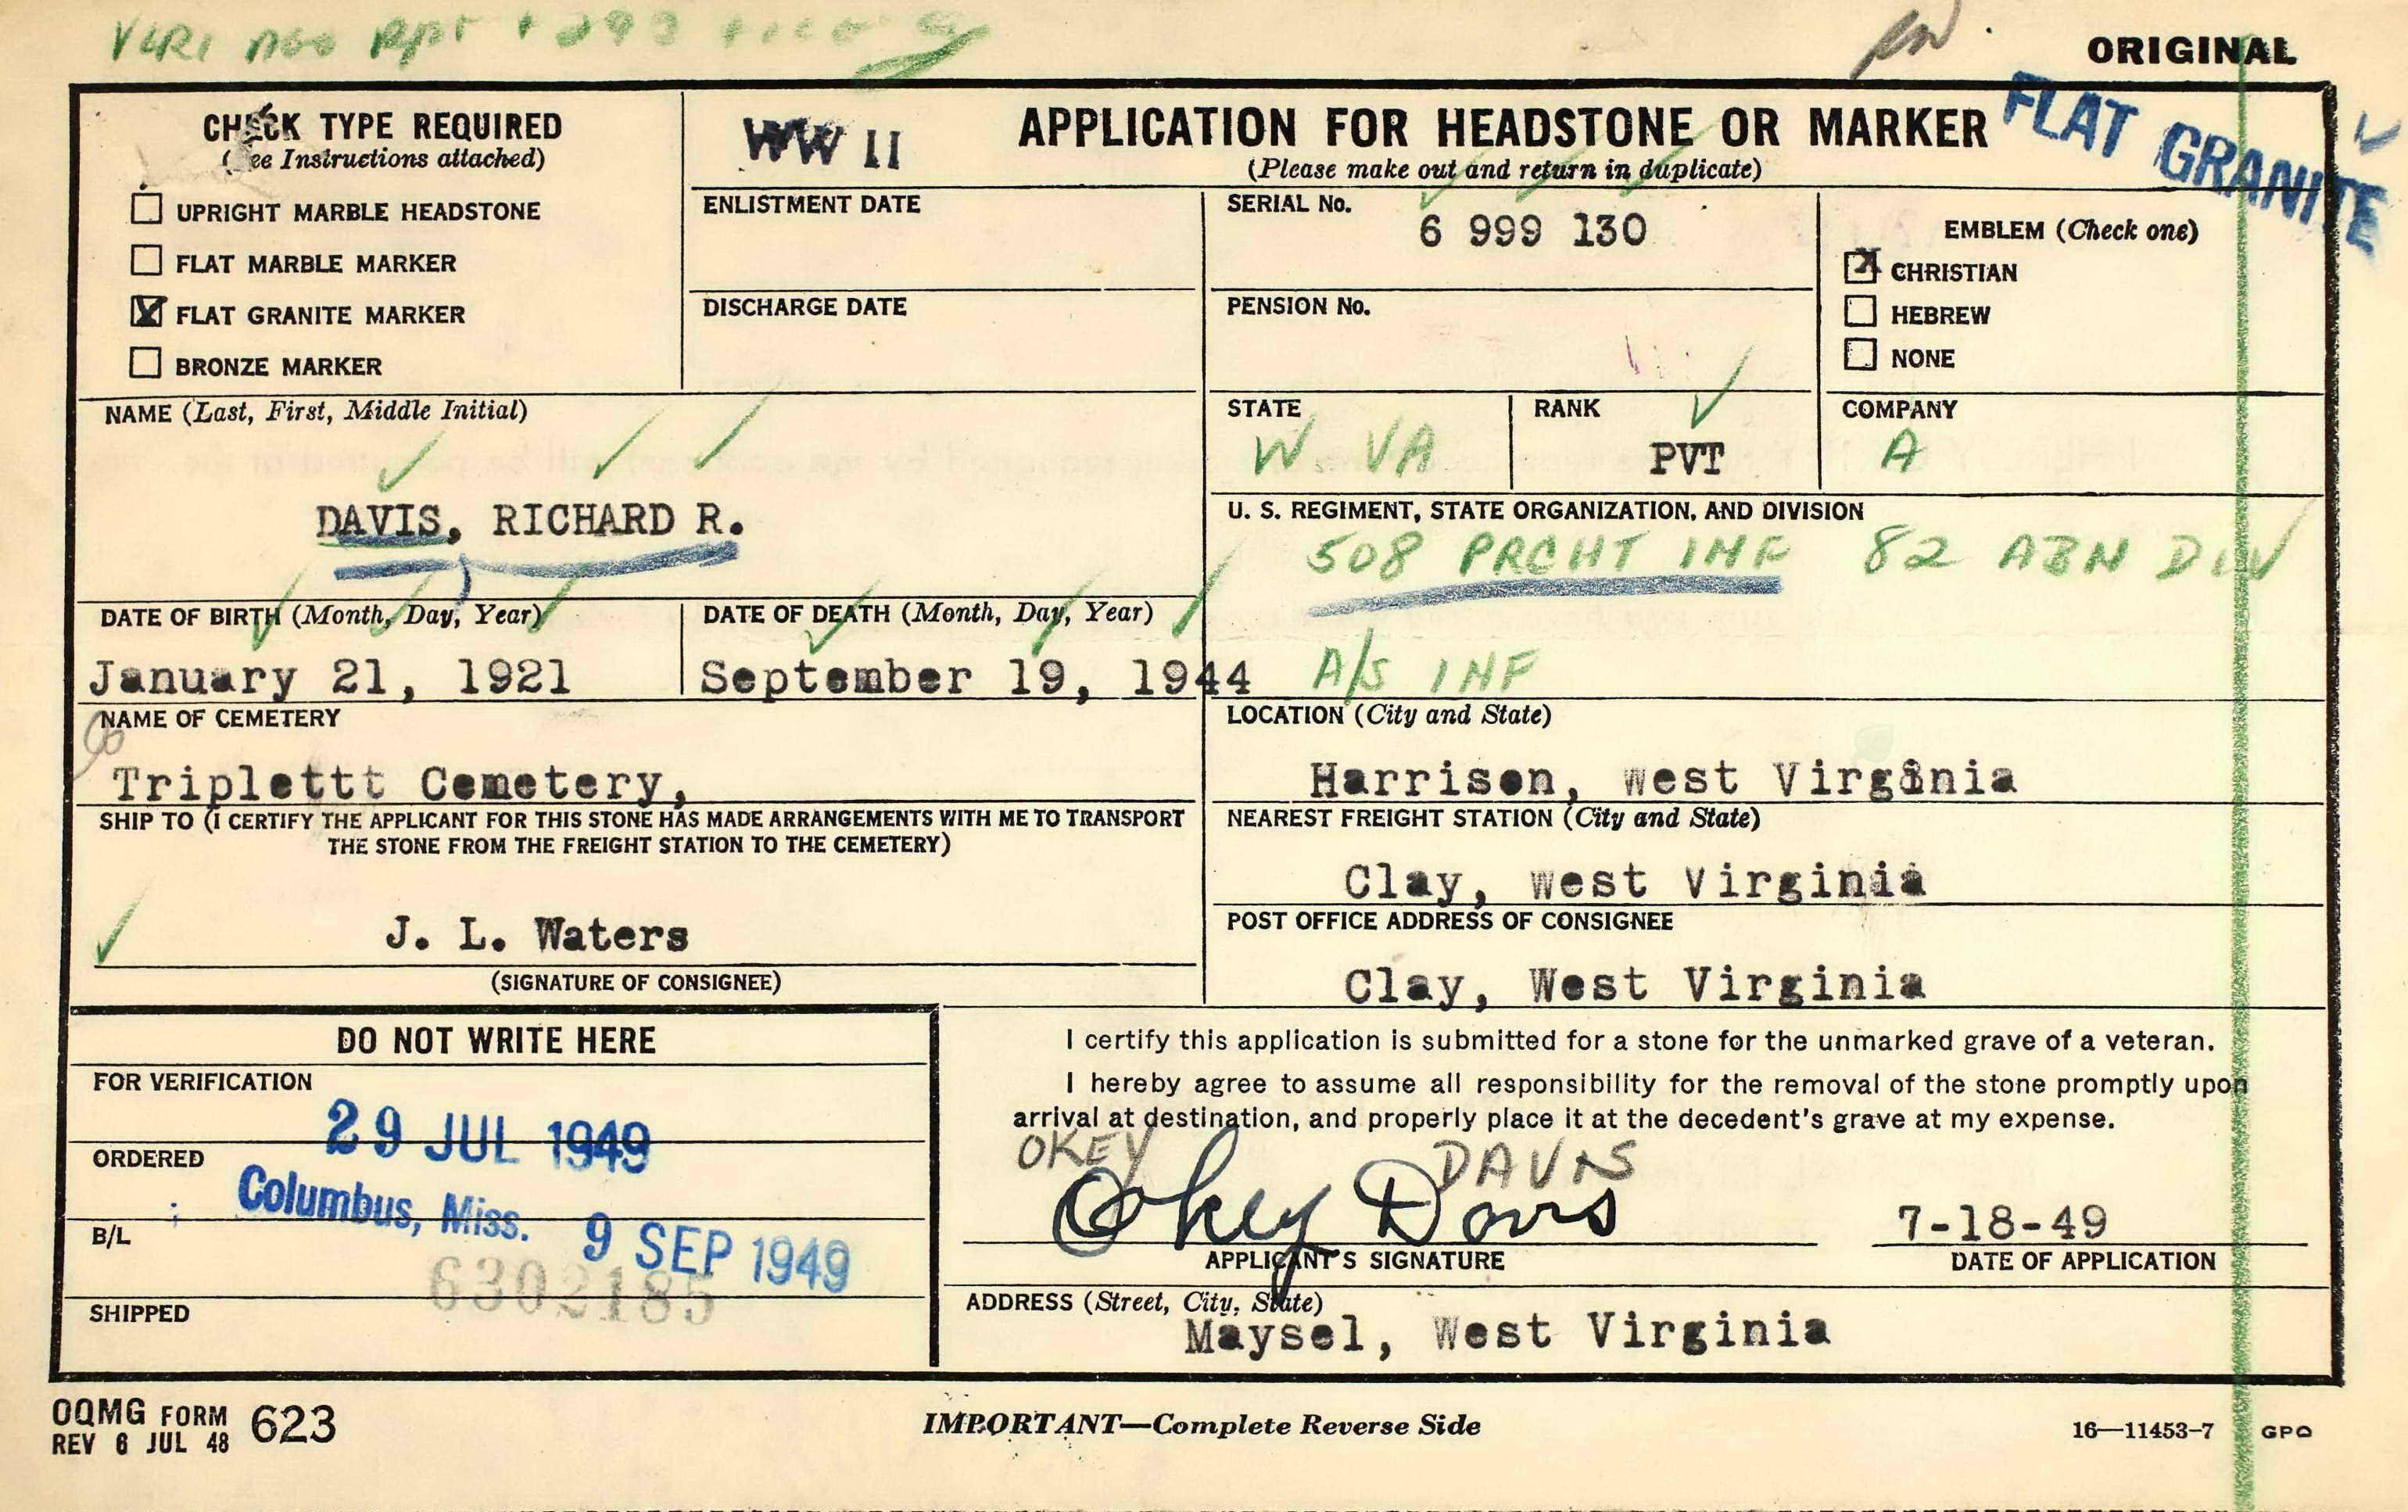 ORIGINAL
CHECK TYPE REQUIRED
(See Instructions attached)
UPRIGHT MARBLE HEADSTONE
FLAT MARBLE MARKER
X FLAT GRANITE MARKER
BRONZE MARKER
WW II
APPLICATION FOR HEADSTONE OR MARKER
(Please make out and return in duplicate)
FLAT GRANITE
ENLISTMENT DATE
DISCHARGE DATE
SERIAL No.
6 999 130
PENSION No.
EMBLEM (Check one)
X CHRISTIAN
HEBREW
NONE
NAME (Last, First, Middle Initial)
DAVIS, RICHARD R.
STATE
W. VA
RANK
PVT
COMPANY
A
U. S. REGIMENT, STATE ORGANIZATION, AND DIVISION
508 PRCHT INF 82 ABN DIV
A/S INF
DATE OF BIRTH (Month, Day, Year)
January 21, 1921
DATE OF DEATH (Month, Day, Year)
September 19, 1944
NAME OF CEMETERY
Triplettt Cemetery,
LOCATION (City and State)
Harrison, west Virginia
SHIP TO (I CERTIFY THE APPLICANT FOR THIS STONE HAS MADE ARRANGEMENTS WITH ME TO TRANSPORT
THE STONE FROM THE FREIGHT STATION TO THE CEMETERY)
J. L. Waters
(SIGNATURE OF CONSIGNEE)
NEAREST FREIGHT STATION (City and State)
Clay, west Virginia
POST OFFICE ADDRESS OF CONSIGNEE
Clay, West Virginia
DO NOT WRITE HERE
FOR VERIFICATION
29 JUL 1949
ORDERED
Columbus, Miss. 9 SEP 1949
B/L
6302185
SHIPPED
I certify this application is submitted for a stone for the unmarked grave of a veteran.
I hereby agree to assume all responsibility for the removal of the stone promptly upon
arrival at destination, and properly place it at the decedent's grave at my expense.
OKEY DAVIS
Okey Davis
APPLICANT'S SIGNATURE
7-18-49
DATE OF APPLICATION
ADDRESS (Street, City, State)
Maysel, West Virginia
OQMG FORM 623
REV 6 JUL 48
IMPORTANT—Complete Reverse Side
16—11453-7 GPO